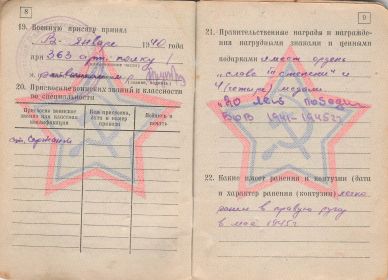 8
19. Военную присягу принял
В январе 1940 года
при 363 арт. полку
(звание, подпись)
20. Присвоение воинских званий и классности
по специальности
Присвоено воинское
звание или классная
квалификация
Кем присвоена,
дата и номер
приказа
Войсков. и
печать
ст. Сержант
9
21. Правительственные награды и награжде-
ния нагрудными знаками и ценными
подарками имеет орден
"слава III степени" и
4 (четыре) медали
"30 лет победы
ВОВ 1941-1945гг"
22. Какие имеет ранения и контузии (дата
и характер ранения (контузии) легко
ранен в правую руку
в мае 1945г.